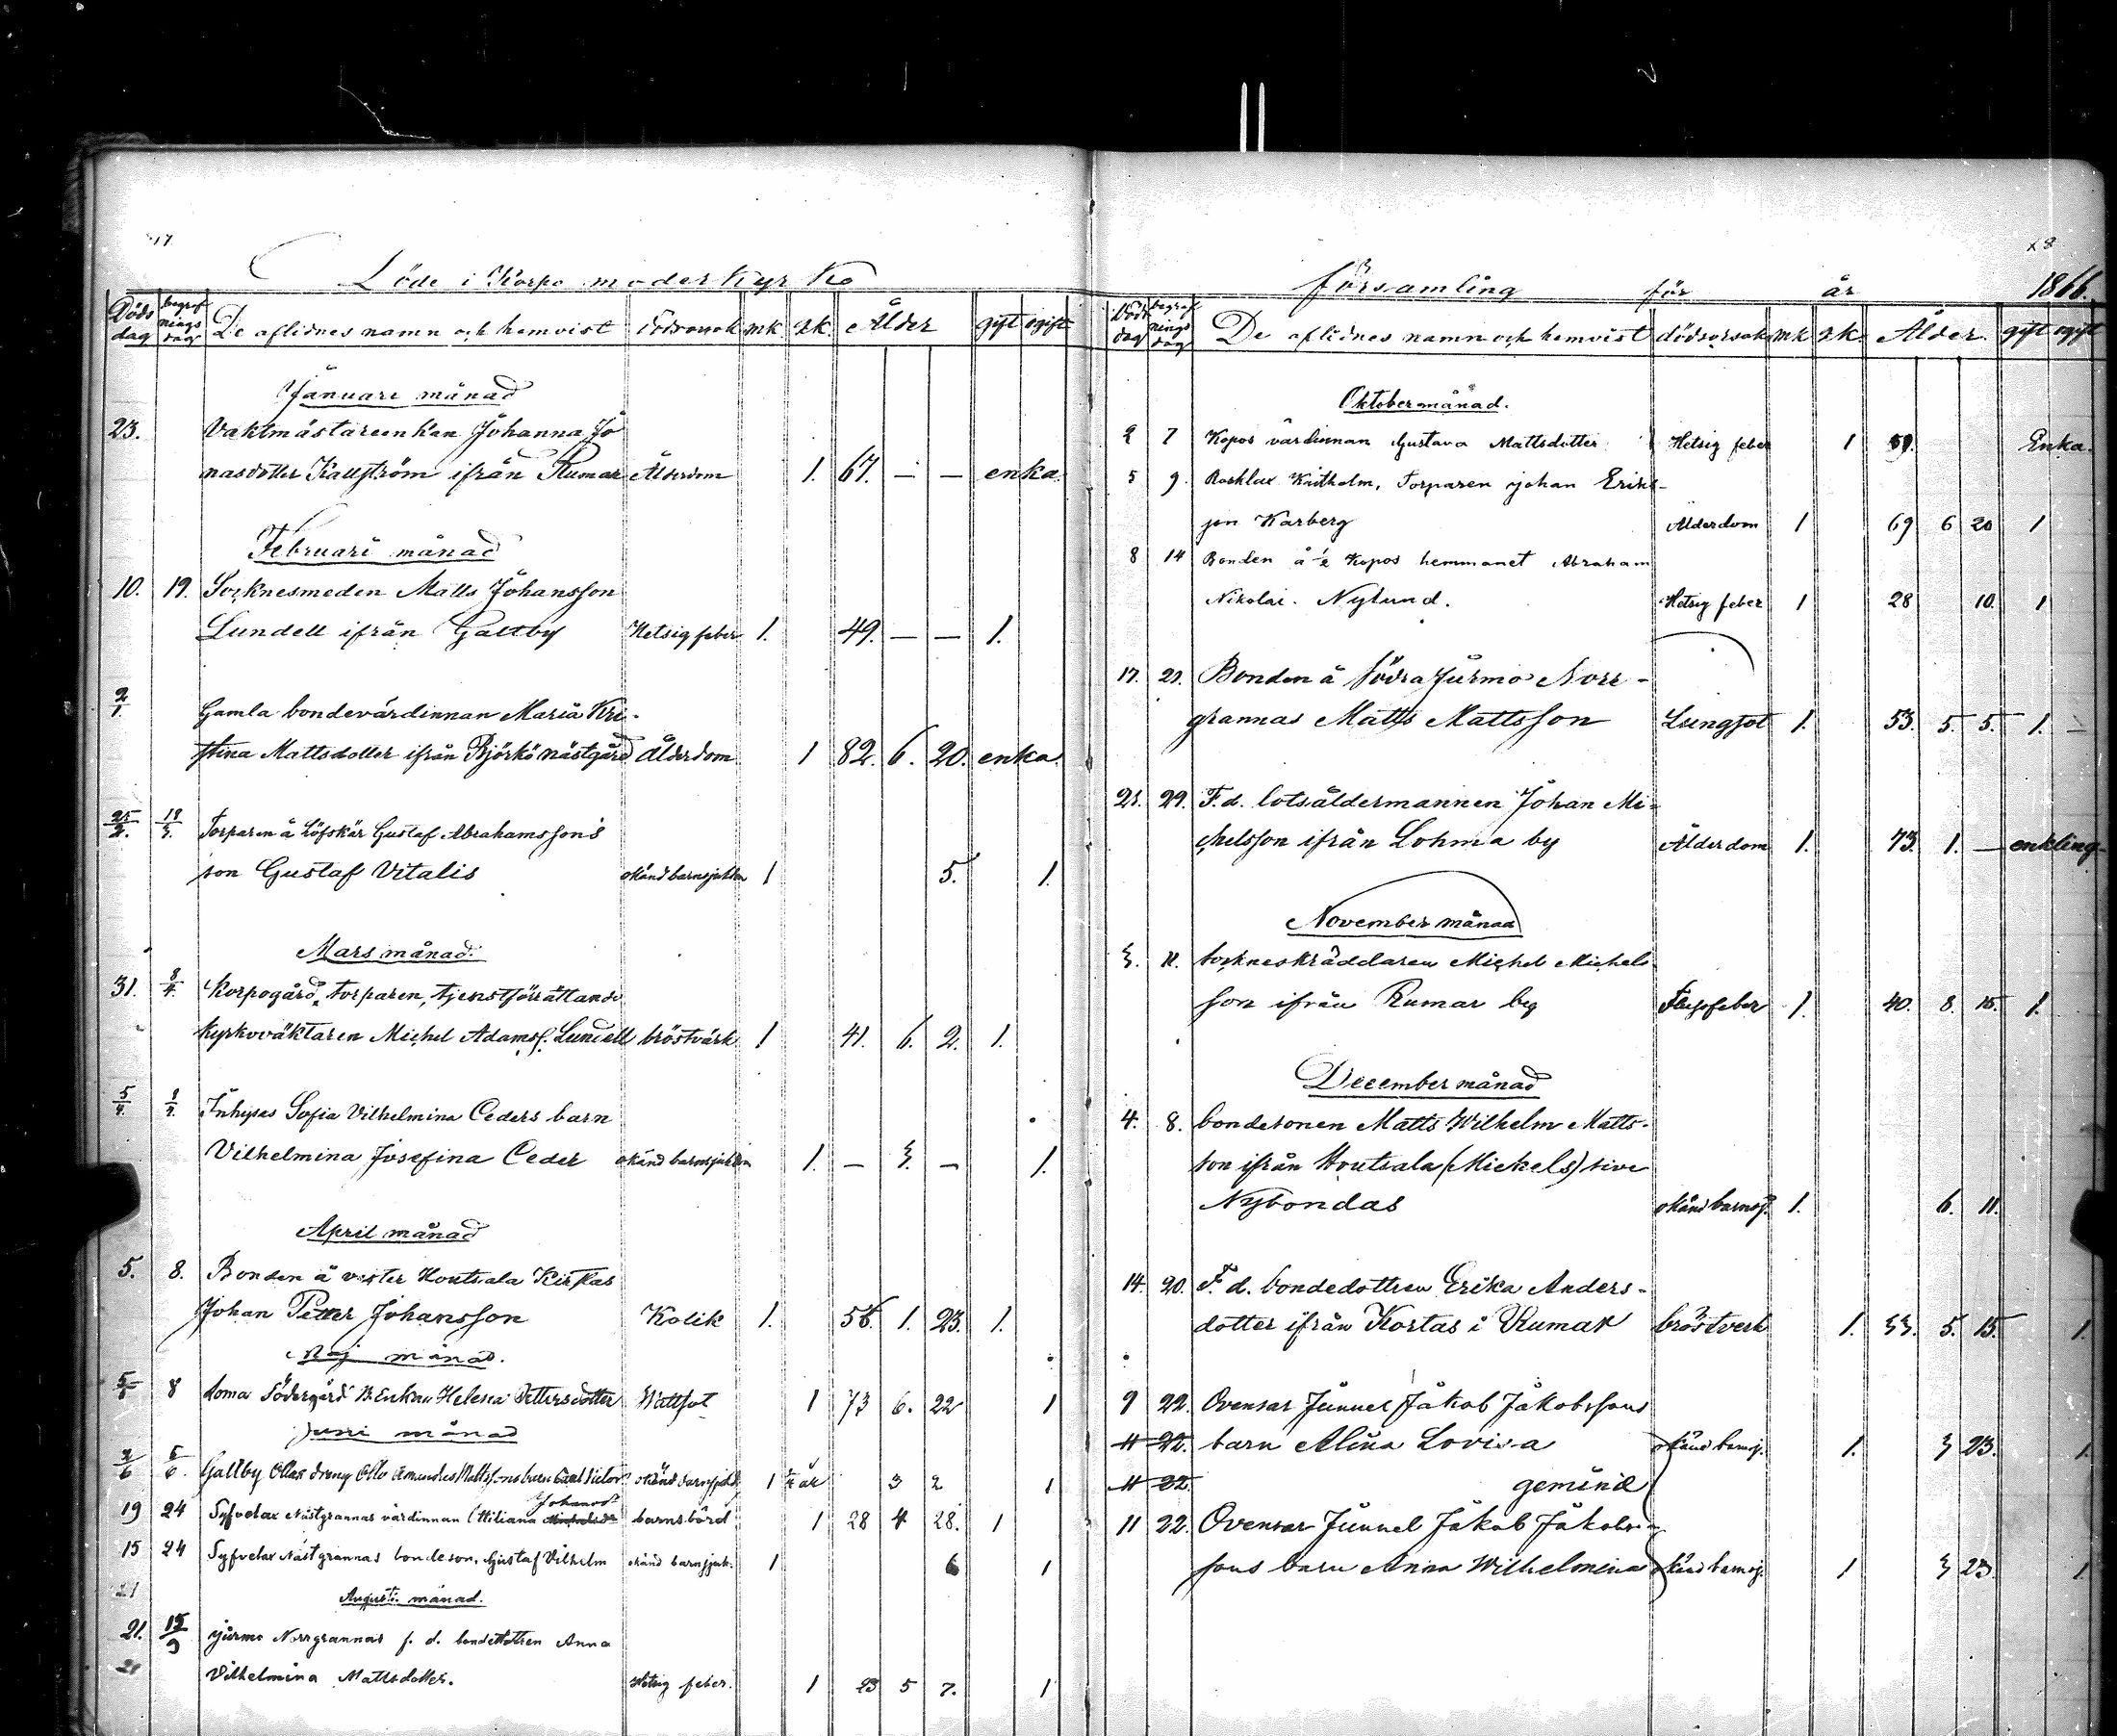 17.
Döde i Korpo moderkyrko
Döds dag begrafnings dag De aflidnes namn och hemvist dödsorsak mk. qk. Ålder gift ogift
Januari månad
23. Vaktmästareenkan Johanna Jo
nasdotter Kallström ifrån Rumar Ålderdom 1. 67. — — enka.
Februari månad
10. 19. Socknesmeden Matts Johansson
Lundell ifrån Galtby Hetsig feber 1. 49. — — 1.
2/1. Gamla bondevärdinnan Maria Kri-
stina Mattsdotter ifrån Björkö nästgård Ålderdom 1 82. 6. 20. enka.
25/2. 18/3. Torparen å Löfskär Gustaf Abrahamsson's
son Gustaf Vitalis okänd barnsjukdom 1 5. 1.
Mars månad.
31. 8/4. Korpogård, torparen, tjenstförrättande
kyrkoväktaren Michel Adamss. Lundell bröstvärk 1 41. 6. 2. 1.
5/4. 8/4. Inhyses Sofia Vilhelmina Ceders barn
Vilhelmina Josefina Ceder okänd barnsjukdom 1. — 3. — 1.
April månad
5. 8. Bonden å vester Houtsala Kirkas
Johan Petter Johansson Kolik 1. 56. 1. 23. 1.
Maj månad.
8 Södergård Enkan Helena Pettersdotter Wattsot 1 73 6. 22 1
Juni månad
Galtby Ollas dräng Otto Amundes Mattssons barn Carl Victor okänd barnsjukd. 1 3 2 1
19 24 Syfvelax Nästgrannas värdinnan Johansdr barnsbörd 1 28 4 28. 1
15 24 Syfvelax Nästgrannas bondeson, Gustaf Vilhelm okänd barnsjuk. 1 6 1
21
Augusti månad.
21. 15/9 Jurmo Norrgrannas f. d. bondedottren Anna
21 Vilhelmina Mattsdotter. Hetsig feber. 1 23 5 7. 1
18
församling för år 1866.
Döds dag begrafnings dag De aflidnes namn och hemvist dödsorsak mk qk. Ålder. gift ogift
Oktober månad.
2 7 Kopos värdinnan Gustava Mattsdotter Hetsig feber 1 Enka.
5 9. Rosklax Kaitholm, Torparen Johan Eriks-
son Karberg Ålderdom 1 69 6 20 1
8 14 Bonden å 1/2 Kopos hemmanet Abraham
Nikolai. Nylund. Hetsig feber 1 28 10. 1
17. 21. Bonden å Södra Jurmo Norr-
grannas Matts Mattsson Lungsot 1. 53. 5. 5. 1. —
21. 29. F. d. lotsåldermannen Johan Mi-
chelsson ifrån Lohma by Ålderdom 1. 73. 1. — enkling
November månad
3. 11. sockneskräddaren Michel Michels
son ifrån Rumar by feber 1. 40. 8. 15. 1.
December månad
4. 8. bondesonen Matts Wilhelm Matts-
son ifrån Houtsala (Mickels) sive
Nybondas okänd barnsj. 1. 6. 11.
14. 20. F. d. bondedottren Erika Anders-
dotter ifrån Kortas i Rumar bröstverk 1. 33. 5. 15. 1.
9 22. Ovensar Junnel Jakob Jakobssons
11 22. barn Alina Lovisa okänd barnsj. 1. 3 23. 1.
11 22. gemina
11 22. Ovensar Junnel Jakob Jakobs-
sons barn Anna Wilhelmina okänd barnsj. 1 3 23. 1